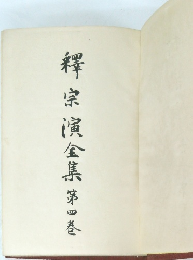 釋宗演全集第四巻